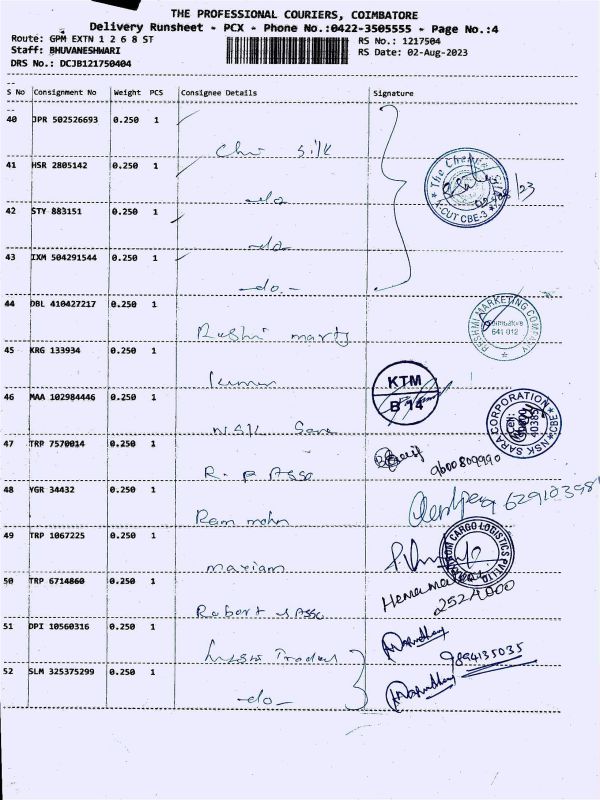 THE PROFESSIONAL COURIERS, COIMBATORE
Delivery Runsheet - PCX - Phone No.:0422-3505555 - Page No.:4
Route: GPM EXTN 1 2 6 8 ST
RS No.: 1217504
Staff: BHUVANESHWARI
RS Date: 02-Aug-2023
DRS No.: DCJB121750404
S No Consignment No Weight PCS Consignee Details Signature
40 JPR 502526693 0.250 1
silk
41 HSR 2805142 0.250 1
-do
42 STY 883151 0.250 1
-do
43 IXM 504291544 0.250 1
-do.-
44 DBL 410427217 0.250 1
45 KRG 133934 0.250 1
KTM
B 14
46 MAA 102984446 0.250 1
NSK SARA CORPORATION CBE
47 TRP 7570014 0.250 1
R. P Asso
9600809990
48 YGR 34432 0.250 1
Ram mohn
49 TRP 1067225 0.250 1
mariam
CARGO LOGISTICS PVT LTD
50 TRP 6714860 0.250 1
Robert & Asso
2524000
51 DPI 10560316 0.250 1
Traders
9894135035
52 SLM 325375299 0.250 1
-do-